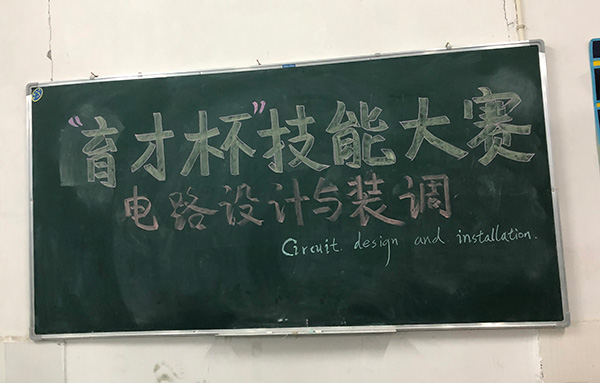 “育才杯”技能大赛
电路设计与装调
Circuit design and installation.